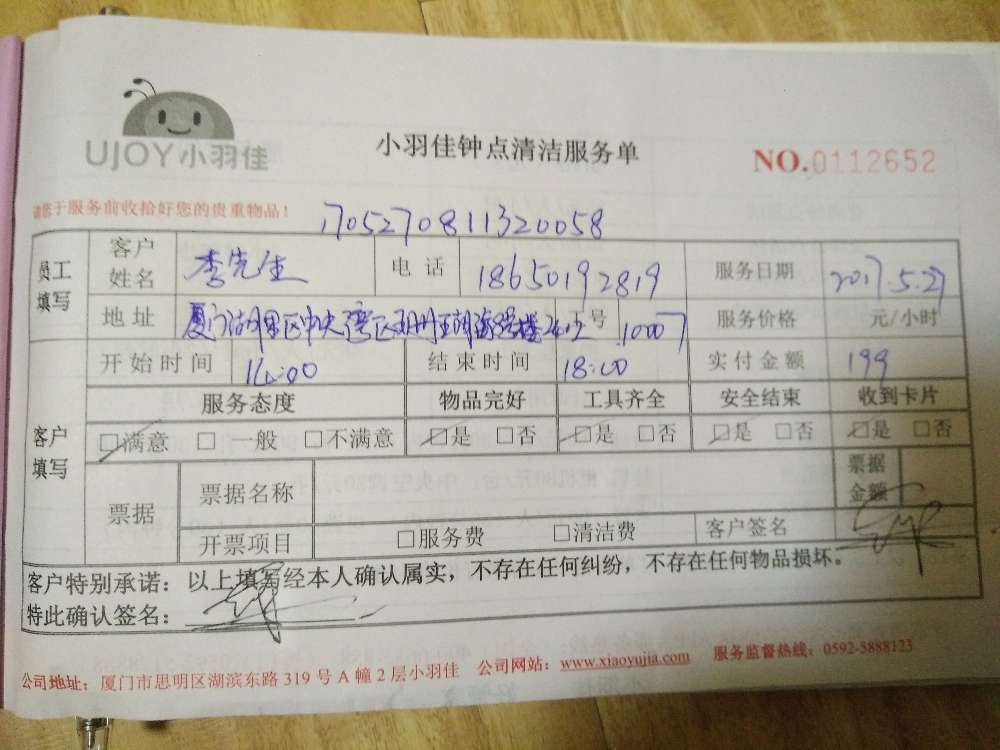 UJOY小羽佳
小羽佳钟点清洁服务单
NO.0112652
请您于服务前收拾好您的贵重物品！
170527081132​0058
员工填写 客户姓名 李先生 电话 18650192819 服务日期 2017.5.27
地址 厦门湖里区中央湾区 工号 10007 服务价格 元/小时
客户填写 开始时间 14:00 结束时间 18:00 实付金额 199
服务态度 物品完好 工具齐全 安全结束 收到卡片
□满意 □一般 □不满意 □是 □否 □是 □否 □是 □否 □是 □否
票据 票据名称 票据金额
开票项目 □服务费 □清洁费 客户签名
客户特别承诺：以上填写经本人确认属实，不存在任何纠纷，不存在任何物品损坏。
特此确认签名：
公司地址：厦门市思明区湖滨东路 319 号 A 幢 2 层小羽佳 公司网站：www.xiaoyujia.com 服务监督热线：0592-5888123